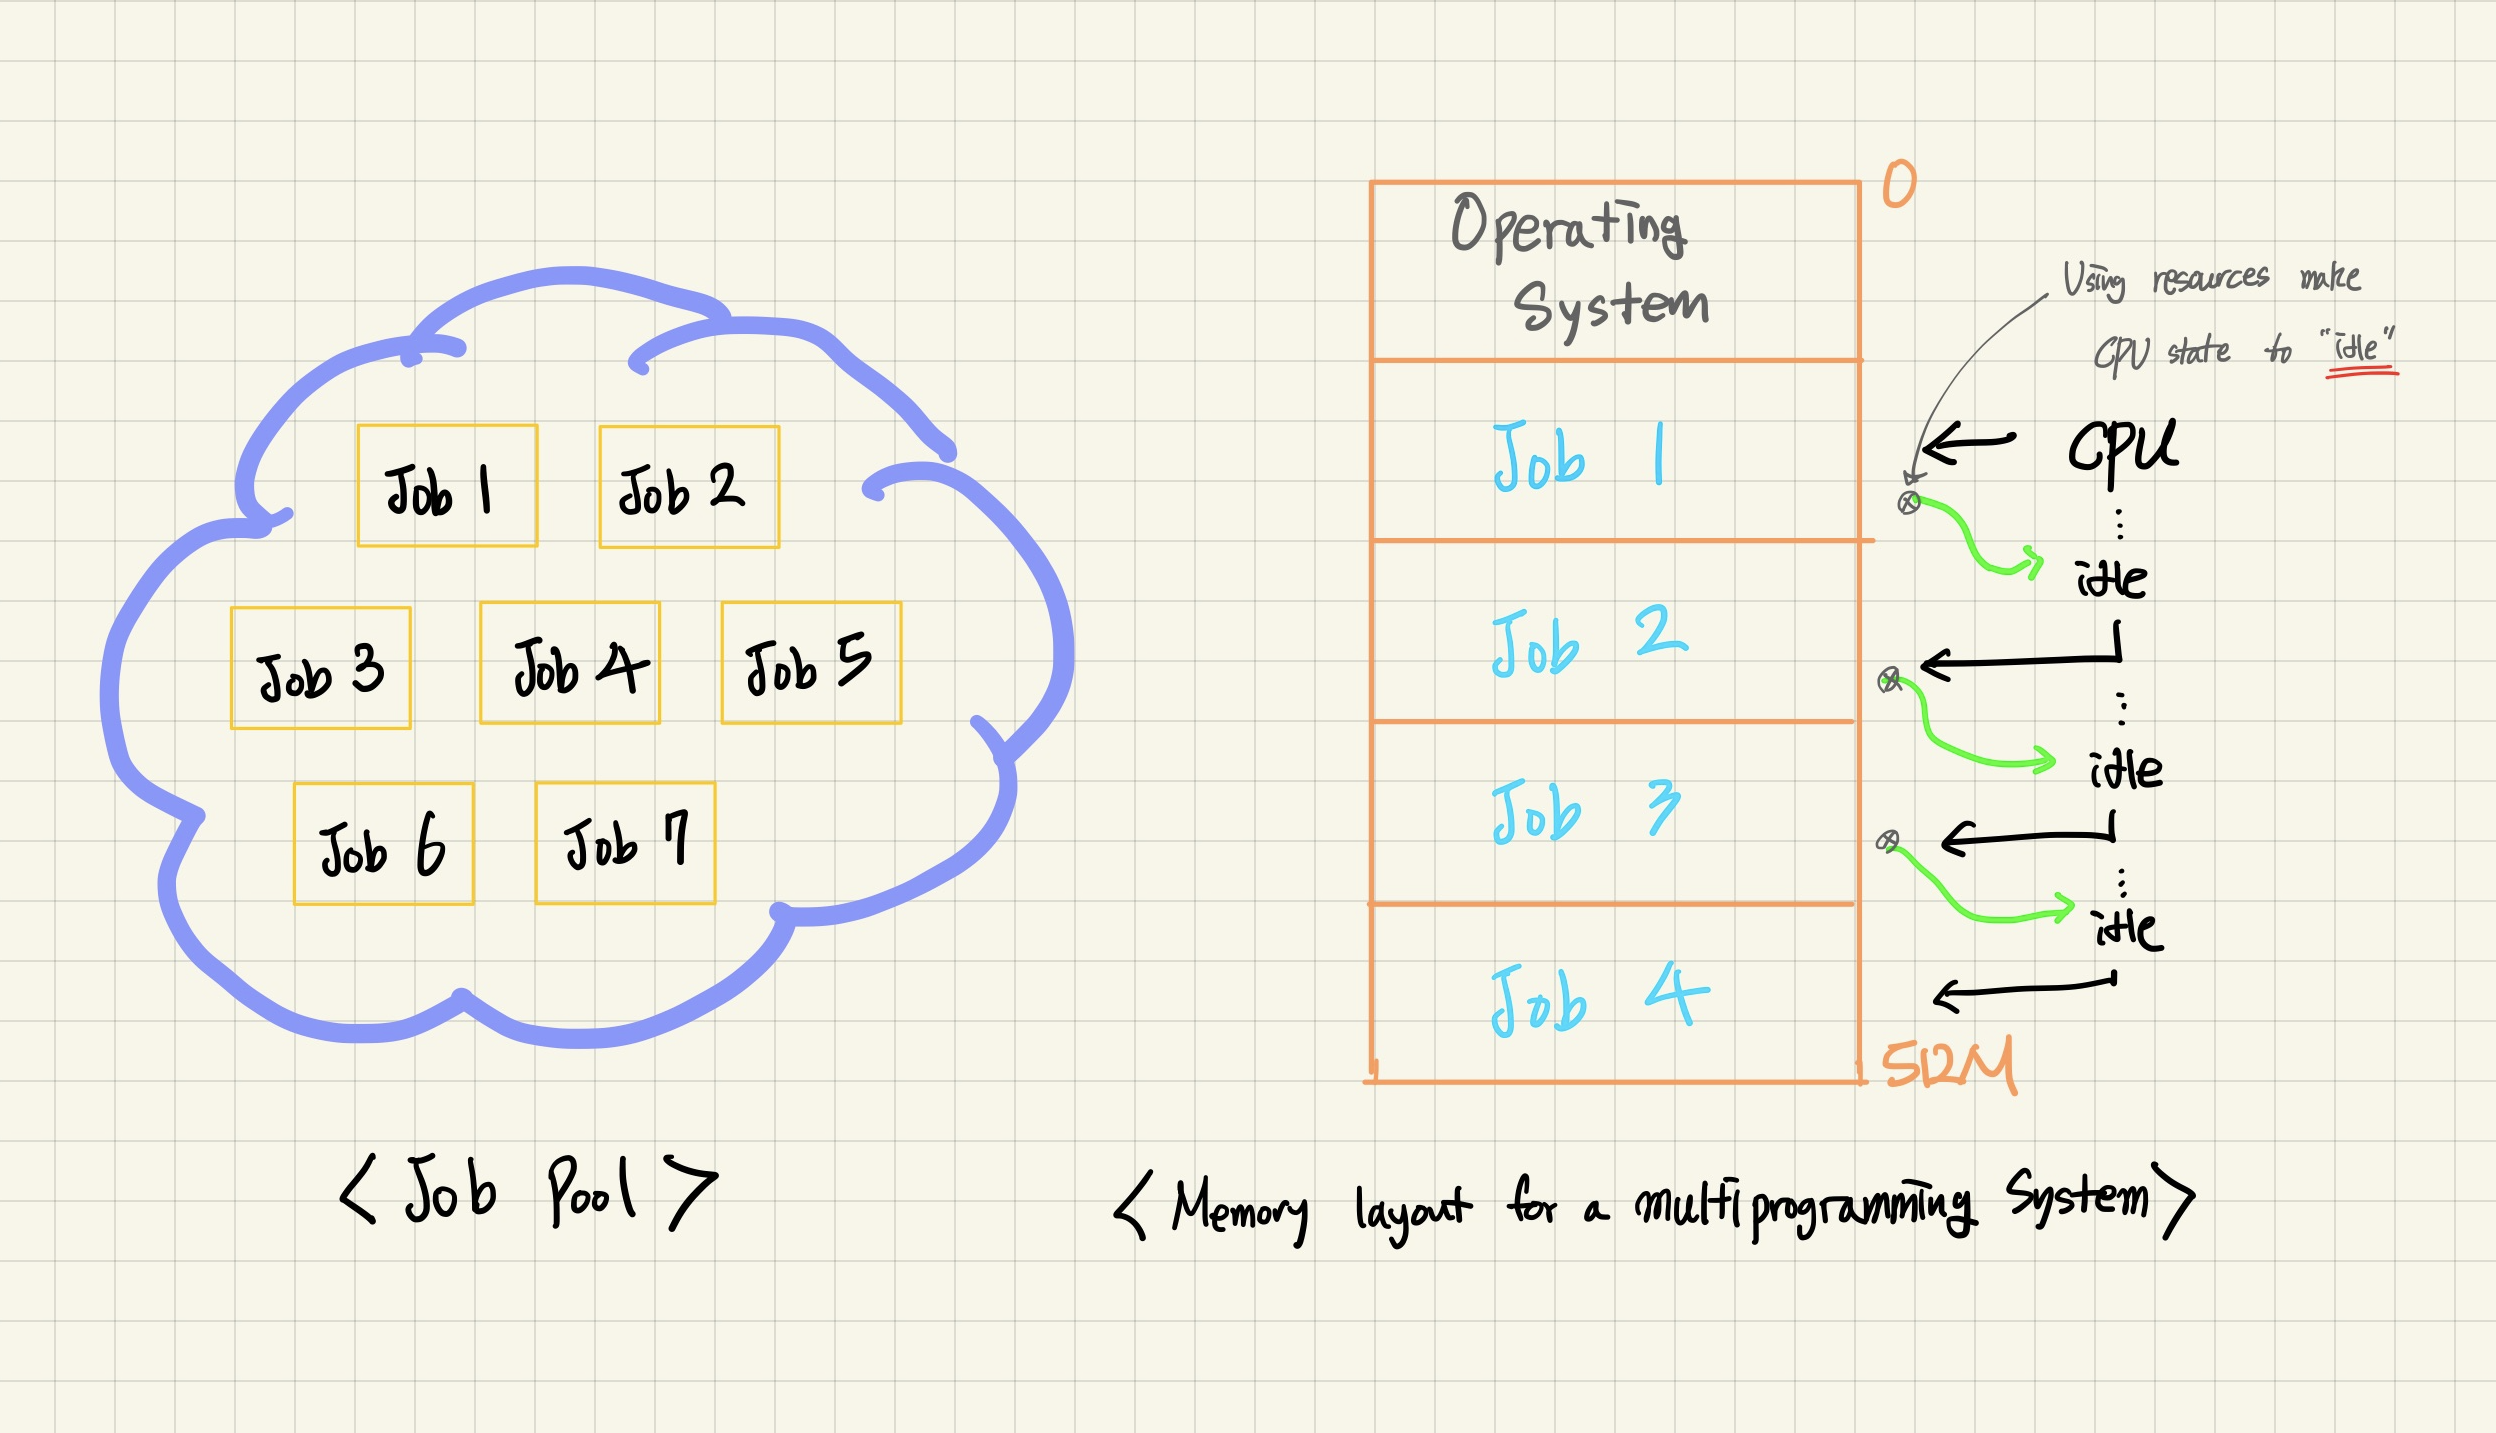 Job 1
Job 2
Job 3
Job 4
Job 5
Job 6
Job 7
< Job Pool >
0
Operating
System
Job 1
Job 2
Job 3
Job 4
512M
Using resources make
CPU state to "idle"
CPU
idle
idle
idle
< Memory layout for a multiprogramming system >